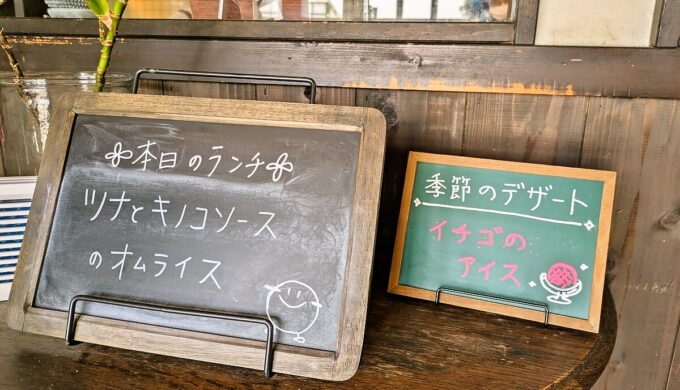 本日のランチ
ツナとキノコソース
のオムライス
季節のデザート
イチゴの
アイス